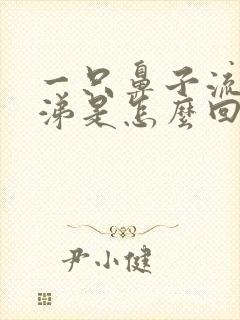 一只鼻子流
涕是怎麼回
尹小健